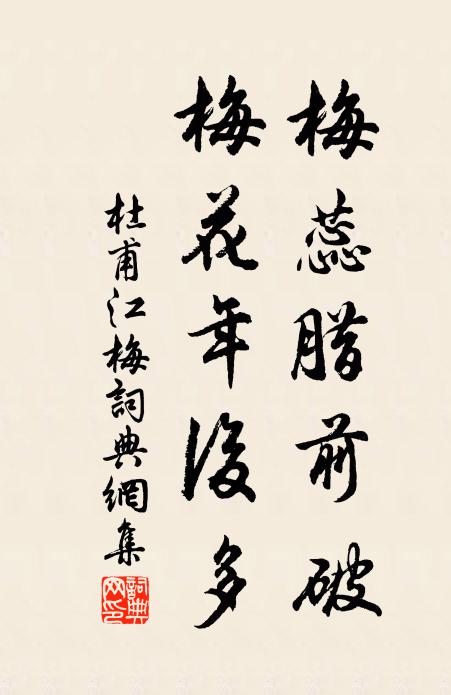 梅蕊腊前破
梅花年後多
杜甫江梅詞典網集
詞典网印